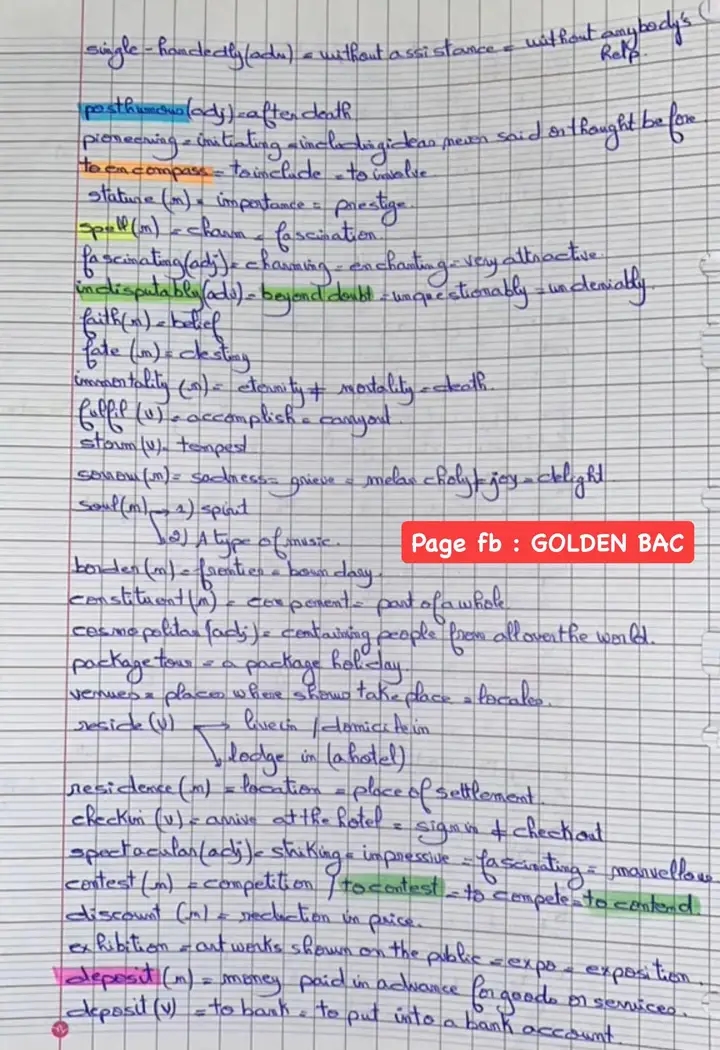 single-handedly (adv) = without assistance = without anybody's
help.
posthumous (adj) = after death
pioneering = initiating = including ideas never said or thought before
to encompass = to include = to involve
stature (n) = importance = prestige.
spell (n) = charm = fascination
fascinating (adj) = charming = enchanting = very attractive.
indisputably (adv) = beyond doubt = unquestionably = undeniably
faith (n) = belief
fate (n) = destiny
immortality (n) = eternity ≠ mortality = death.
fulfil (v) = accomplish = carry out.
storm (v) = tempest
sorrow (n) = sadness = grieve = melancholy ≠ joy = delight
soul (n) → 1) spirit
↘ 2) A type of music.
Page fb : GOLDEN BAC
border (n) = frontier = boundary.
constituent (n) = component = part of a whole
cosmopolitan (adj) = containing people from all over the world.
package tour = a package holiday.
venues = places where shows take place = locales.
reside (v) → live in / domicile in
↘ lodge in (a hotel)
residence (n) = location = place of settlement.
check in (v) = arrive at the hotel = sign in ≠ check out
spectacular (adj) = striking = impressive = fascinating = marvellous
contest (n) = competition / to contest = to compete = to contend
discount (n) = reduction in price.
exhibition = art works shown on the public = expo = exposition.
deposit (n) = money paid in advance for goods or services.
deposit (v) = to bank = to put into a bank account